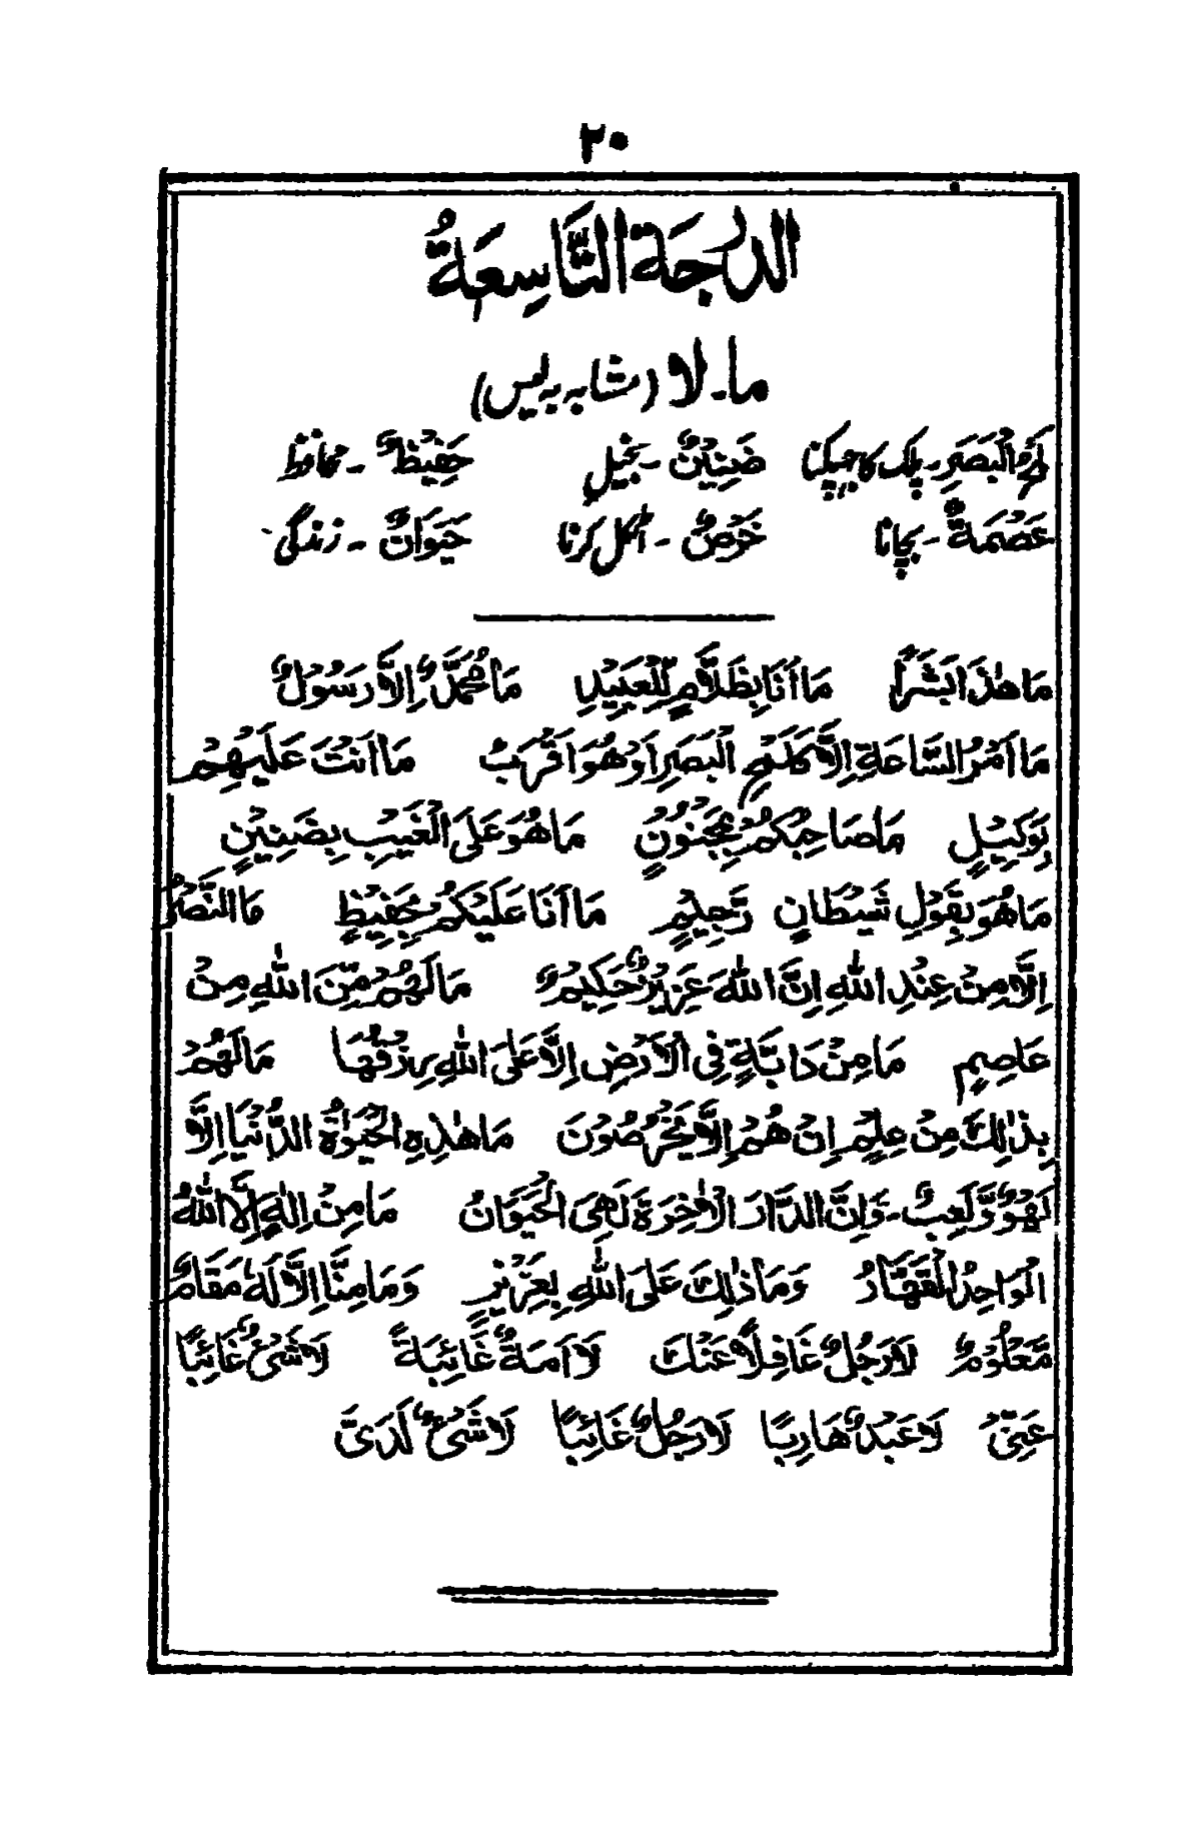 ۲۰
الدَّرَجَةُ التَّاسِعَةُ
ما۔ لا (مشابہ بہ لیس)
لَمْحُ الْبَصَرِ۔ پلک کا جھپکنا ضَنِيْنٌ۔ بخیل حَفِيْظٌ۔ محافظ
عَصْمَةٌ۔ بچانا خَرْصٌ۔ اٹکل کرنا حَيَوَانٌ۔ زندگی
مَا هٰذَا بَشَرًا مَا اَنَا بِظَلَّامٍ لِّلْعَبِيْدِ مَا مُحَمَّدٌ اِلَّا رَسُوْلٌ
مَا اَمْرُ السَّاعَةِ اِلَّا كَلَمْحِ الْبَصَرِ اَوْ هُوَ اَقْرَبُ مَا اَنْتَ عَلَيْهِمْ
بِوَكِيْلٍ مَا صَاحِبُكُمْ بِمَجْنُوْنٍ مَا هُوَ عَلَى الْغَيْبِ بِضَنِيْنٍ
مَا هُوَ بِقَوْلِ شَيْطَانٍ رَّجِيْمٍ مَا اَنَا عَلَيْكُمْ بِحَفِيْظٍ مَا النَّصْرُ
اِلَّا مِنْ عِنْدِ اللّٰهِ اِنَّ اللّٰهَ عَزِيْزٌ حَكِيْمٌ مَا لَهُمْ مِّنَ اللّٰهِ مِنْ
عَاصِمٍ مَا مِنْ دَابَّةٍ فِى الْاَرْضِ اِلَّا عَلَى اللّٰهِ رِزْقُهَا مَا لَهُمْ
بِذٰلِكَ مِنْ عِلْمٍ اِنْ هُمْ اِلَّا يَخْرُصُوْنَ مَا هٰذِهِ الْحَيٰوةُ الدُّنْيَا اِلَّا
لَهْوٌ وَّلَعِبٌ۔ وَاِنَّ الدَّارَ الْاٰخِرَةَ لَهِىَ الْحَيَوَانُ مَا مِنْ اِلٰهٍ اِلَّا اللّٰهُ
الْوَاحِدُ الْقَهَّارُ وَمَا ذٰلِكَ عَلَى اللّٰهِ بِعَزِيْزٍ وَمَا مِنَّا اِلَّا لَهٗ مَقَامٌ
مَّعْلُوْمٌ لَا رَجُلٌ غَافِلًا عَنْكَ لَا اَمَةٌ غَائِبَةً لَا شَىْءٌ غَائِبًا
عَنِّىْ لَا عَبْدٌ هَارِبًا لَا رَجُلٌ غَائِبًا لَا شَىْءٌ لَدَىَّ